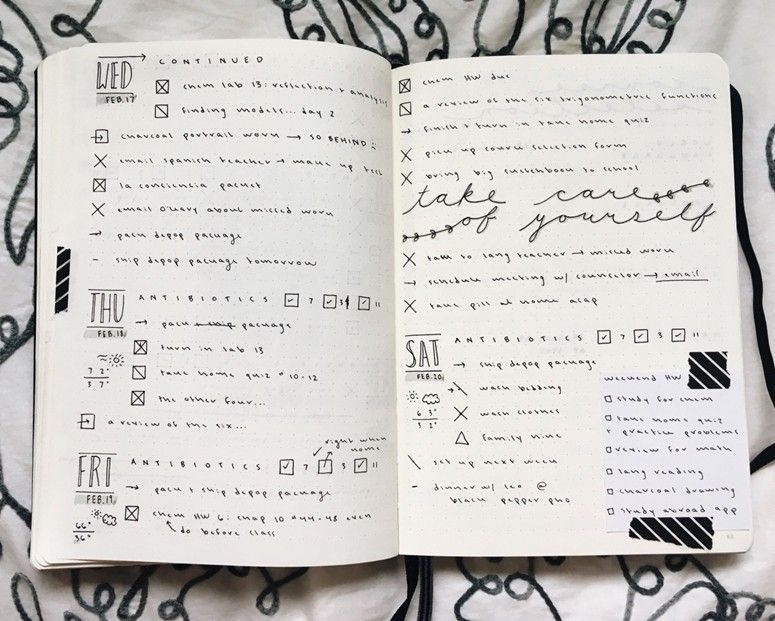 WED CONTINUED
FEB.17
chem lab 13: reflection + analysis
finding models... day 2
charcoal portrait work → SO BEHIND :(
email spanish teacher → make up test
la conciencia packet
email o'leary about missed work
→ pack depop package
- ship depop package tomorrow
THU ANTIBIOTICS 7 3 11
FEB.18
→ pack ship package
turn in lab 13
72° 37°
take home quiz #10-12
the other four...
a review of the six...
right when home
FRI ANTIBIOTICS 7 3 11
FEB.19
→ pack + ship depop package
66° 36°
chem HW 6: chap 10 #44-48 even
do before class
chem HW due
a review of the six trigonometric functions
→ finish + turn in take home quiz
pick up course selection form
bring big sketchbook to school
take care
of yourself
talk to lang teacher → missed work
→ schedule meeting w/ counselor → email
take pill at home asap
SAT ANTIBIOTICS 7 3 11
FEB.20
→ ship depop package
63° 32°
wash bedding
wash clothes
family hike
set up next week
- dinner w/ leo @
black pepper pho
weekend HW
study for chem
take home quiz
+ practice problems
review for math
lang reading
charcoal drawing
study abroad app